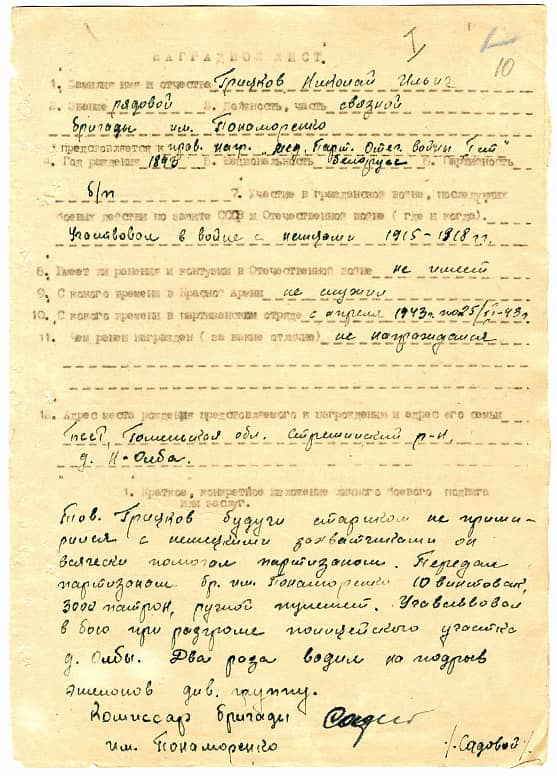 I
10
НАГРАДНОЙ ЛИСТ
1. Фамилия имя и отчество Грицков Николай Ильич
2. Звание рядовой 3. Должность, часть связной
бригады им. Пономаренко
Представляется к прав. нагр. „мед. Парт. Отеч. войны I ст"
4. Год рождения 5. Национальность белорусс 6. Партийность
б/п 7. Участие в гражданской войне, последующих
боевых действиях по защите СССР и Отечественной войне (где и когда).
Участвовал в войне с немцами 1915-1918 гг.
8. Имеет ли ранения и контузии в Отечественной войне не имеет
9. С какого времени в Красной Армии не служил
10. С какого времени в партизанском отряде с апреля 1943г. по 25/XI-43г.
11. Чем ранен награжден (за какие отличие) не награждался
12. Адрес места рождения представляемого к награждению и адрес его семьи
БССР, Гомельская обл. Стрешинский р-н,
д. Н-Олба.
1. Краткое, конкретное изложение личного боевого подвига
или заслуг.
Тов. Грицков будучи стариком не прими-
рился с немецкими захватчиками он
всячески помогал партизанам. Передал
партизанам бр. им. Пономаренко 10 винтовок,
3000 патрон, ручной пулемет. Участвовал
в бою при разгроме полицейского участка
д. Олбы. Два раза водил на подрыв
эшелонов див. группу.
Комиссар бригады
им. Пономаренко /Садовой/